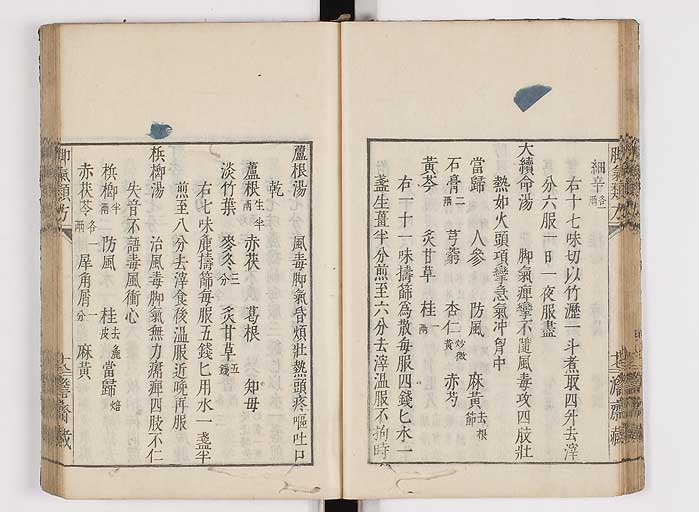 細辛各一兩
右十七味切以竹瀝一斗煮取四升去滓
分六服一日一夜服盡
大續命湯 脚氣痺攣不隨風毒攻四肢壯
熱如火頭項攣急氣冲胷中
當歸 人參 防風 麻黄去根節
石膏二兩 芎藭 杏仁炒微黄 赤芍
黄芩 炙甘草 桂一兩
右一十一味擣篩爲散每服四錢匕水一
盞生薑半分煎至六分去滓溫服不拘時
蘆根湯 風毒脚氣昏煩壯熱頭疼嘔吐口
乾
蘆根生半 赤茯 葛根 知母
淡竹葉 麥冬三分 炙甘草五錢
右七味麄擣篩每服五錢匕用水一盞半
煎至八分去滓食後溫服近晩再服
檳榔湯 治風毒脚氣無力㿏痺四肢不仁
失音不語毒風衝心
檳榔半兩 防風 桂去麄皮 當歸焙
赤茯苓各一兩 犀角屑一分 麻黄
脚氣類方
脚氣類方